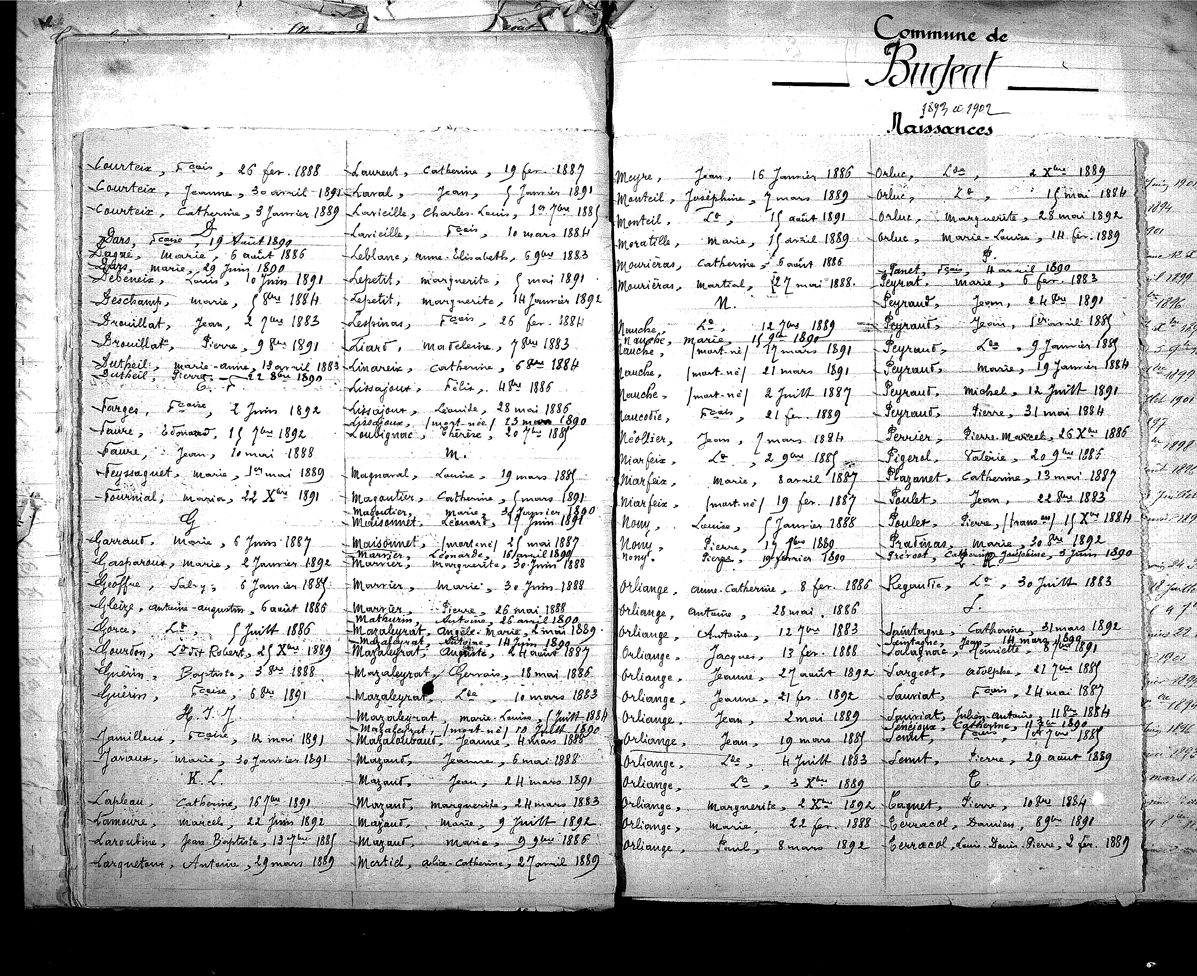 Commune de
Bugeat
1893 à 1902
Naissances
Courteix, Fçois, 26 fer. 1888
Courteix, Jeanne, 30 avril 1891
Courteix, Catherine, 3 Janvier 1889
D
Dars, Fçoise, 19 Août 1890
Dagne, Marie, 6 août 1886
Dars, marie, 29 Juin 1890
Debeneix, Louis, 10 Juin 1891
Deschamp, marie, 5 8bre 1884
Drouillat, Jean, 2 7bre 1883
Drouillat, Pierre, 9 8bre 1891
Dutheil, marie-anne, 13 avril 1883
Dutheil, Pierre, 22 8bre 1890
E. F.
Farges, Fçoise, 2 Juin 1892
Faure, Edouard, 15 7bre 1892
Faure, Jean, 10 mai 1888
Feyssaguet, marie, 1er mai 1889
Fournial, maria, 22 Xbre 1891
G
Garraud, Marie, 6 Juin 1887
Gasparoux, Marie, 2 Janvier 1892
Geoffre, 6 Janvier 1885
Gleize, antoine-augustin, 6 août 1886
Gorce, Ld, 5 Juillt 1886
Gourdon, Ld dit Robert, 25 Xbre 1889
Guérin, Baptiste, 3 8bre 1888
Guérin, Fçoise, 6 8re 1891
H. I. J
Jamilloux, Fçoise, 12 mai 1891
Janoux, Marie, 30 Janvier 1891
K. L.
Lapleau, Catherine, 16 7bre 1891
Lamoure, marcel, 22 Juin 1892
Laroubine, Jean-Baptiste, 13 7bre 1885
Larqueteux, Antoine, 29 mars 1889
Laurent, Catherine, 19 fer. 1887
Laval, Jean, 5 Janvier 1891
Laveille, Charles-Louis, 1er 7bre 1885
Laveille, Fçois, 10 mars 1884
Leblanc, anne-Elisabeth, 6 9bre 1883
Lepetit, marguerite, 5 mai 1891
Lepetit, marguerite, 14 Janvier 1892
Lespinas, Fçois, 26 fer. 1884
Liard, Madeleine, 7 8bre 1883
Linareix, Catherine, 6 8bre 1884
Lissajoux, Félix, 4 8re 1886
Lissajoux, Léonide, 28 mai 1886
Lissajoux, (mort-né) 23 mars 1890
Louvignac, Thérèse, 20 7bre 1885
M.
Magnaval, Louise, 19 mars 1885
Magoutier, Catherine, 5 mars 1891
Magoutier, marie, 30 Janvier 1890
Maisonnet, Léonard, 19 Juin 1891
Maisonnet, (mort-né) 25 mai 1887
Marsier, Léonarde, 16 avril 1890
Marsier, marguerite, 30 Juin 1888
Marsier, Marie, 30 Juin 1888
Marsier, Pierre, 26 mai 1888
Mathurin, Antoine, 26 avril 1890
Mazaleyrat, Angèle-Marie, 2 mai 1889
Mazaleyrat, Antoine, 14 Juin 1890
Mazaleyrat, Auguste, 24 août 1887
Mazaleyrat, Gervais, 18 mai 1886
Mazaleyrat, Lde, 10 mars 1883
Mazaleyrat, marie-Louise, 5 Juillt 1884
Mazaleyrat, (mort-né) 10 Juillt 1890
Mazaloubaud, Jeanne, 4 mars 1886
Mazaud, Jeanne, 6 mai 1888
Mazaud, Jean, 24 mars 1891
Mazaud, marguerite, 24 mars 1883
Mazaud, marie, 9 Juillt 1892
Mazaud, marie, 9 9bre 1886
Mertiel, alice-Catherine, 27 avril 1889
Meyre, Jean, 16 Janvier 1886
Monteil, Joséphine, 7 mars 1889
Monteil, Ld, 15 août 1891
Moratille, Marie, 15 avril 1889
Mouriéras, Catherine, 6 août 1886
Mouriéras, martial, 27 mai 1888.
N.
Nauche, Ld, 12 7bre 1889
Nauche, marie, 15 9bre 1890
Nauche, (mort-né) 17 mars 1891
Nauche, (mort-né) 21 mars 1891
Nauche, (mort-né) 2 Juillt 1887
Naucodie, Fçois, 21 fer. 1889
Néollier, Jean, 7 mars 1884
Niarfeix, Ld, 2 9bre 1885
Niarfeix, Marie, 8 avril 1887
Niarfeix, (mort-né) 19 fer. 1887
Nony, Louise, 5 Janvier 1888
Nony, Pierre, 1889
Nony, Pierre, février 1890
Orliange, anne-Catherine, 8 fer. 1886
Orliange, Antoine, 28 mai 1886
Orliange, Antoine, 12 7bre 1883
Orliange, Jacques, 13 fer. 1888
Orliange, Jeanne, 27 août 1892
Orliange, Jeanne, 21 fer. 1892
Orliange, Jean, 2 mai 1889
Orliange, Jean, 19 mars 1885
Orliange, Lde, 4 Juillt 1883
Orliange, Ld, 3 Xbre 1889
Orliange, Marguerite, 2 Xbre 1892
Orliange, marie, 22 fer. 1888
Orliange, Paul, 8 mars 1892
Orluc, Lde, 2 Xbre 1889
Orluc, Ld, 15 mai 1884
Orluc, Marguerite, 28 mai 1892
Orluc, Marie-Louise, 14 fer. 1889
P.
Panet, Fçois, 4 avril 1890
Peyrat, Marie, 6 fer. 1883
Peyraud, Jean, 24 8bre 1891
Peyraud, Jean, 1er avril 1885
Peyraud, Lde, 9 Janvier 1885
Peyraud, Marie, 19 Janvier 1884
Peyraud, michel, 12 Juillt 1891
Peyraud, Pierre, 31 mai 1884
Perrier, Pierre-Marcel, 26 Xbre 1886
Pigerol, Valérie, 20 9bre 1886
Plazanet, Catherine, 13 mai 1887
Poulet, Jean, 22 8bre 1883
Poulet, Pierre, 15 Xbre 1884
Pradinas, Marie, 30 8bre 1892
Prévost, Catherine Joséphine, 3 Juin 1890
Q. R
Regaudie, Ld, 30 Juillt 1883
S.
Saintagne, Catherine, 31 mars 1892
Saintagne, Jean, 14 mars 1890
Salagnac, Henriette, 8 7bre 1891
Sargot, adolphe, 21 7bre 1885
Sauviat, Fçois, 24 mai 1887
Sauviat, Julien-antoine, 11 8bre 1884
Catherine, 11 1890
Senut, Fçois, 1er 7bre 1885
Senut, Pierre, 29 août 1889
T.
Tagnet, Pierre, 10 8re 1884
Terracol, Damien, 8 9bre 1891
Terracol, Louis-Denis-Pierre, 2 fer. 1889